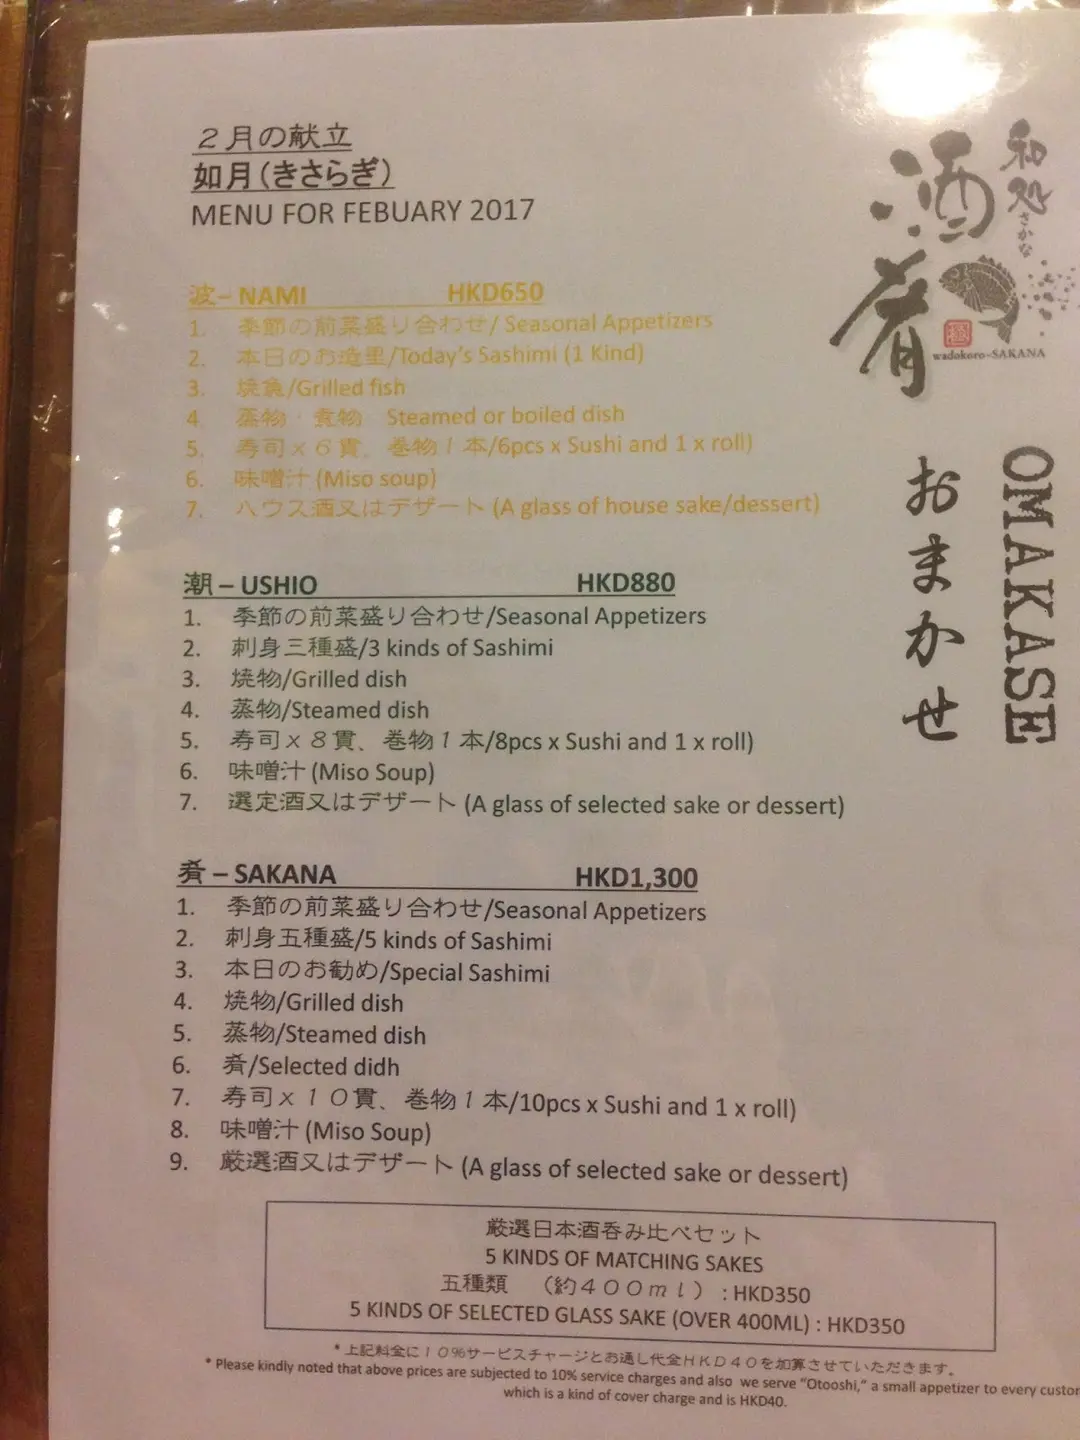 ２月の献立
如月（きさらぎ）
MENU FOR FEBUARY 2017
波– NAMI HKD650
1. 季節の前菜盛り合わせ/ Seasonal Appetizers
2. 本日のお造里/Today’s Sashimi (1 Kind)
3. 焼魚/Grilled fish
4 蒸物・煮物 Steamed or boiled dish
5. 寿司ｘ６貫、巻物１本/6pcs x Sushi and 1 x roll)
6. 味噌汁 (Miso soup)
7. ハウス酒又はデザート (A glass of house sake/dessert)
潮 – USHIO HKD880
1. 季節の前菜盛り合わせ/Seasonal Appetizers
2. 刺身三種盛/3 kinds of Sashimi
3. 焼物/Grilled dish
4. 蒸物/Steamed dish
5. 寿司ｘ８貫、巻物１本/8pcs x Sushi and 1 x roll)
6. 味噌汁 (Miso Soup)
7. 選定酒又はデザート (A glass of selected sake or dessert)
肴 – SAKANA HKD1,300
1. 季節の前菜盛り合わせ/Seasonal Appetizers
2. 刺身五種盛/5 kinds of Sashimi
3. 本日のお勧め/Special Sashimi
4. 焼物/Grilled dish
5. 蒸物/Steamed dish
6. 肴/Selected didh
7. 寿司ｘ１０貫、巻物１本/10pcs x Sushi and 1 x roll)
8. 味噌汁 (Miso Soup)
9. 厳選酒又はデザート (A glass of selected sake or dessert)
厳選日本酒呑み比べセット
5 KINDS OF MATCHING SAKES
五種類 （約４００ｍｌ）：HKD350
5 KINDS OF SELECTED GLASS SAKE (OVER 400ML) : HKD350
* 上記料金に１０％サービスチャージとお通し代金ＨＫＤ４０を加算させていただきます。
* Please kindly noted that above prices are subjected to 10% service charges and also we serve “Otooshi,” a small appetizer to every
which is a kind of cover charge and is HKD40.
和処
さかな
酒肴
wadokoro-SAKANA
おまかせ
OMAKASE